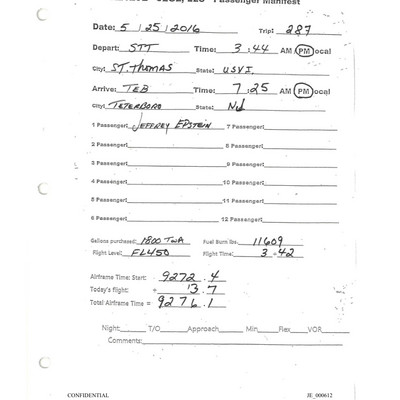 LLC - Passenger Manifest
Date: 5 / 25 / 2016 Trip: 287
Depart: STT Time: 3 : 44 AM PM Local
City: ST. THOMAS State: USVI
Arrive: TEB Time: 7 : 25 AM PM Local
City: TETERBORO State: NJ
1 Passenger: JEFFREY EPSTEIN 7 Passenger:
2 Passenger: 8 Passenger:
3 Passenger: 9 Passenger:
4 Passenger: 10 Passenger:
5 Passenger: 11 Passenger:
6 Passenger: 12 Passenger:
Gallons purchased: 1800 TWA Fuel Burn lbs: 11609
Flight Level: FL450 Flight Time: 3 + 42
Airframe Time: Start: 9272 . 4
Today's flight: + 3 . 7
Total Airframe Time = 9276 . 1
Night: T/O Approach Min Flex VOR
Comments:
CONFIDENTIAL JE_000612